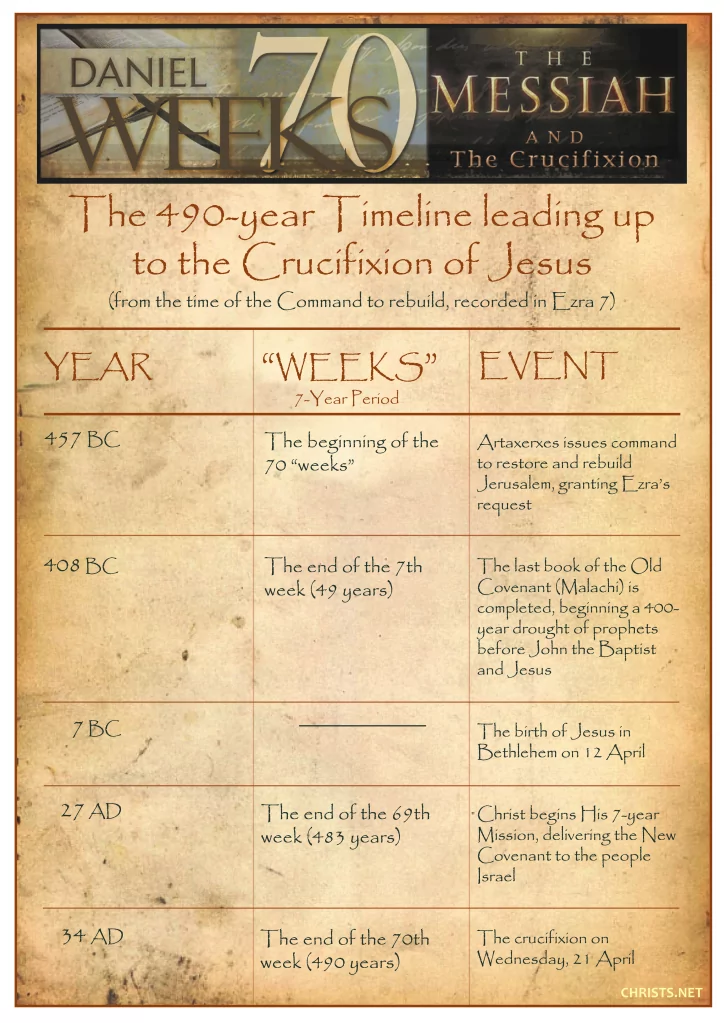 DANIEL
70
WEEKS
THE
MESSIAH
AND
The Crucifixion
The 490-year Timeline leading up
to the Crucifixion of Jesus
(from the time of the Command to rebuild, recorded in Ezra 7)
YEAR
“WEEKS”
7-Year Period
EVENT
457 BC
The beginning of the
70 “weeks”
Artaxerxes issues command
to restore and rebuild
Jerusalem, granting Ezra’s
request
408 BC
The end of the 7th
week (49 years)
The last book of the Old
Covenant (Malachi) is
completed, beginning a 400-
year drought of prophets
before John the Baptist
and Jesus
7 BC
The birth of Jesus in
Bethlehem on 12 April
27 AD
The end of the 69th
week (483 years)
Christ begins His 7-year
Mission, delivering the New
Covenant to the people
Israel
34 AD
The end of the 70th
week (490 years)
The crucifixion on
Wednesday, 21 April
CHRISTS.NET